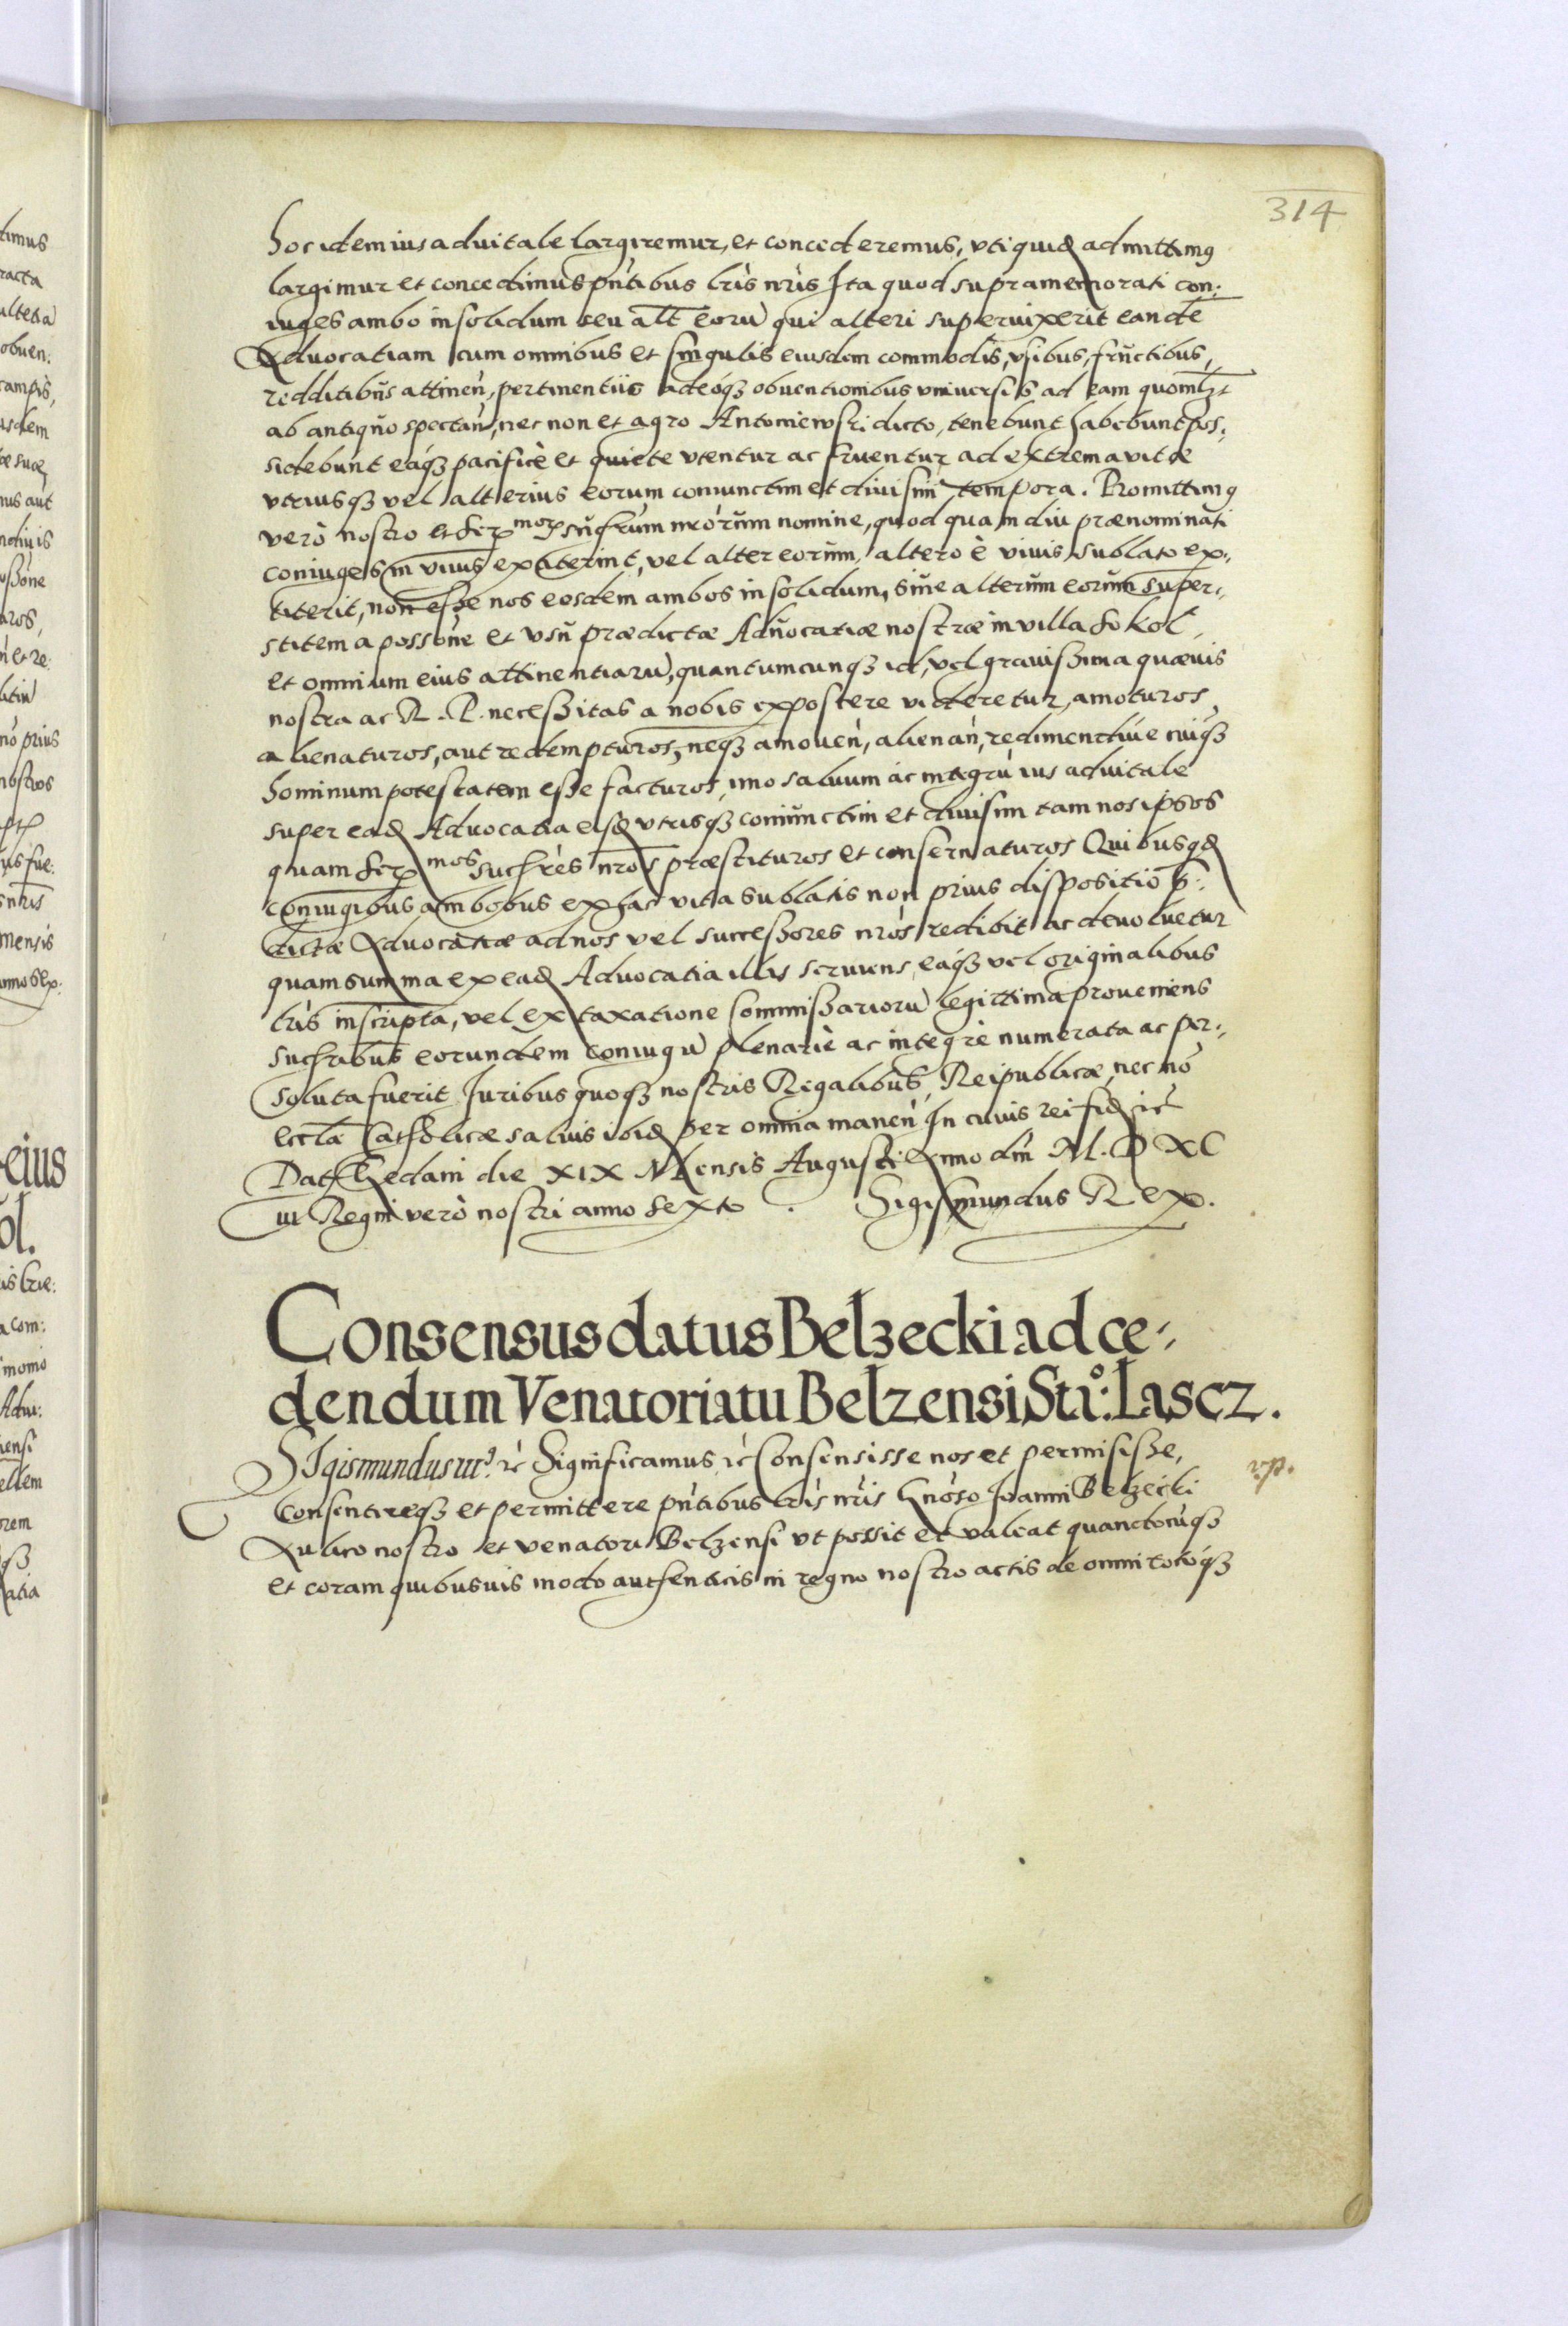 314
hoc idem ius aduitale largiremur, et concederemus, vti quidē admittimꝰ
largimur et concedimus pñtibus lrĩs nrĩs Ita quod supramemorati con:
iuges ambo in solidum seu alt̃ eorũ qui alteri superuixerit eandẽ
Aduocatiam cum omnibus et singulis eiusdem commodis, vsibus, fructibus,
redditibus attineñ, pertinentiis adeóqꝫ obuentionibus vniuersis ad eam quomlꝫt
ab antiquo spectañ, nec non et agro Antoniewski dicto, tenebunt habebunt pos:
sidebunt eáqꝫ pacificè et quiete vtentur ac fruentur ad extrema vitæ
vtriusqꝫ vel alterius eorum coniunctim et diuisim tempora. Promittimꝰ
verò nostro et Ser̃ morꝫ suc̃srum nr̃orum nomine, quod quam diu prænominati
coniuges in viuis extiterint, vel alter eorum, altero è viuis sublato ex:
titerit, non esse nos eosdem ambos in solidum, siue alterum eorum super:
stitem a possone et vsu prædictæ Aduocatiæ nostræ in villa Sokol,
et omnium eius attinentiarũ, quantumcunqꝫ id, vel grauissima quæuis
nostra ac R. P. necessitas a nobis exposcere videretur, amoturos,
alienaturos, aut redempturos, neqꝫ amoueñ, alienañ, redimendiue cuiqꝫ
hominum potestatem esse facturos, imo saluum ac integrũ ius aduitale
super eadē Aduocatia eisdē vtrisqꝫ coniunctim et diuisim tam nos ipsos
quam Ser̃ mos suc̃sres nr̃os præstituros et conseruaturos Quibus qdē
coniugibus ambobus ex hac vita sublatis non prius dispositio p̃:
dictæ Aduocatiæ ad nos vel successores nr̃os redibit ac deuoluetur
quam summa ex eadē Aduocatia illis seruiens, eáqꝫ vel originalibus
lrĩs inscripta, vel ex taxatione Commissariorũ legittima proueniens
suc̃sribus eorundem coniugũ plenariè ac integrè numerata ac per:
soluta fuerit Iuribus quoqꝫ nostris Regalibus, Reipublicæ, nec nõ
Eccl̃æ Catholicæ saluis ibidē per omnia maneñ In cuius rei fidē ꝛc̃
Dat Gedani die XIX Mensis Augusti Anno dñi M. D XC
III Regni verò nostri anno Sexto . Sigismundus Rex.
Consensus datus Belzecki ad ce:
dendum Venatoriatu Belzensi Sto: Lascz.
SIgismundus IIIꝰ. ꝛc̃ Significamus ꝛc̃ Consensisse nos et permisisse,
Consentireqꝫ et permittere pñtibus lrĩs nrĩs Gnõso Ioanni Belzecki
Aulico nostro et venatori Belzensi vt possit et valeat quandocũqꝫ
et coram quibusuis modo authenticis in regno nostro actis de omni totóqꝫ